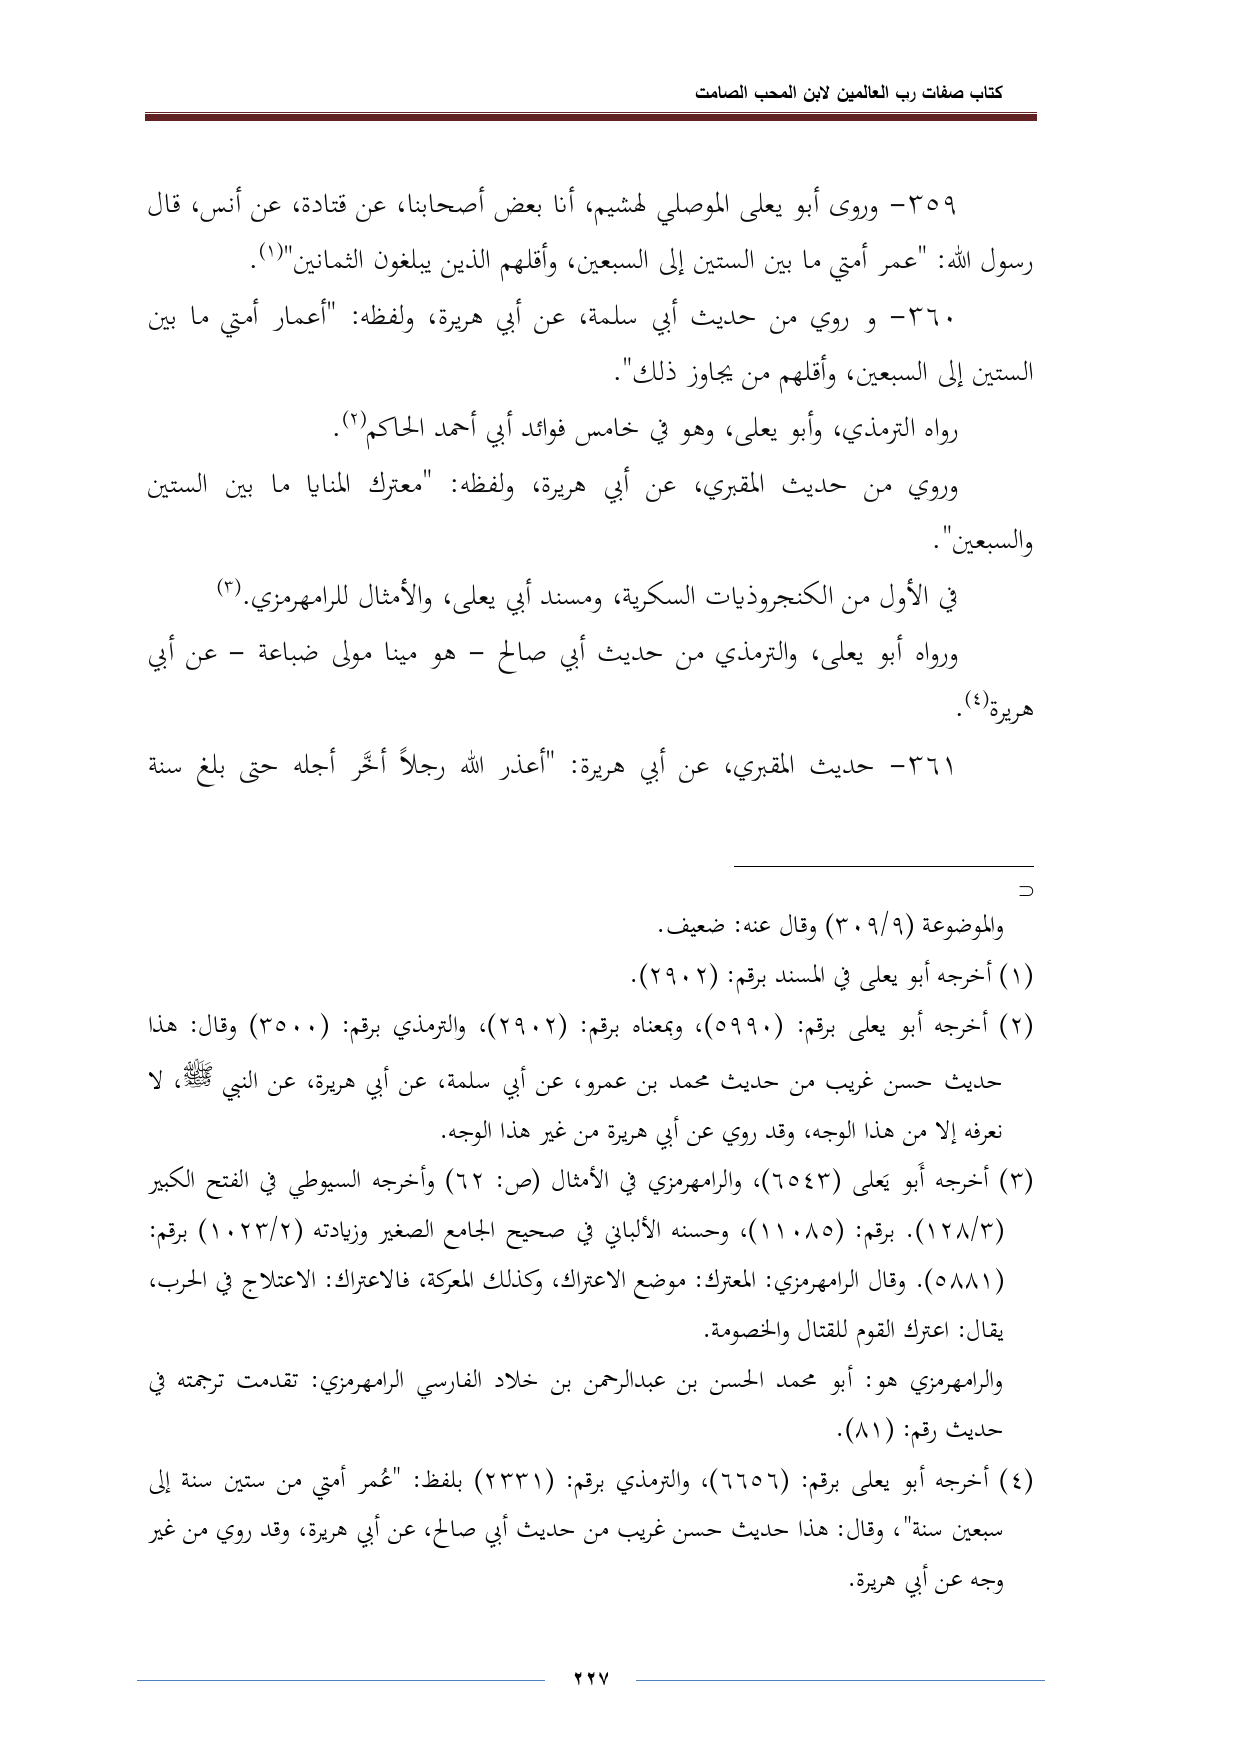 كتاب صفات رب العالمين لابن المحب الصامت
٣٥٩- وروى أبو يعلى الموصلي لهشيم، أنا بعض أصحابنا، عن قتادة، عن أنس، قال
رسول الله: "عمر أمتي ما بين الستين إلى السبعين، وأقلهم الذين يبلغون الثمانين"(١).
٣٦٠- و روي من حديث أبي سلمة، عن أبي هريرة، ولفظه: "أعمار أمتي ما بين
الستين إلى السبعين، وأقلهم من يجاوز ذلك".
رواه الترمذي، وأبو يعلى، وهو في خامس فوائد أبي أحمد الحاكم(٢).
وروي من حديث المقبري، عن أبي هريرة، ولفظه: "معترك المنايا ما بين الستين
والسبعين".
في الأول من الكنجروذيات السكرية، ومسند أبي يعلى، والأمثال للرامهرمزي.(٣)
ورواه أبو يعلى، والترمذي من حديث أبي صالح – هو مينا مولى ضباعة – عن أبي
هريرة(٤).
٣٦١- حديث المقبري، عن أبي هريرة: "أعذر الله رجلاً أخَّر أجله حتى بلغ سنة
⊃
والموضوعة (٣٠٩/٩) وقال عنه: ضعيف.
(١) أخرجه أبو يعلى في المسند برقم: (٢٩٠٢).
(٢) أخرجه أبو يعلى برقم: (٥٩٩٠)، وبمعناه برقم: (٢٩٠٢)، والترمذي برقم: (٣٥٠٠) وقال: هذا
حديث حسن غريب من حديث محمد بن عمرو، عن أبي سلمة، عن أبي هريرة، عن النبي ﷺ، لا
نعرفه إلا من هذا الوجه، وقد روي عن أبي هريرة من غير هذا الوجه.
(٣) أخرجه أَبو يَعلى (٦٥٤٣)، والرامهرمزي في الأمثال (ص: ٦٢) وأخرجه السيوطي في الفتح الكبير
(١٢٨/٣). برقم: (١١٠٨٥)، وحسنه الألباني في صحيح الجامع الصغير وزيادته (١٠٢٣/٢) برقم:
(٥٨٨١). وقال الرامهرمزي: المعترك: موضع الاعتراك، وكذلك المعركة، فالاعتراك: الاعتلاج في الحرب،
يقال: اعترك القوم للقتال والخصومة.
والرامهرمزي هو: أبو محمد الحسن بن عبدالرحمن بن خلاد الفارسي الرامهرمزي: تقدمت ترجمته في
حديث رقم: (٨١).
(٤) أخرجه أبو يعلى برقم: (٦٦٥٦)، والترمذي برقم: (٢٣٣١) بلفظ: "عُمر أمتي من ستين سنة إلى
سبعين سنة"، وقال: هذا حديث حسن غريب من حديث أبي صالح، عن أبي هريرة، وقد روي من غير
وجه عن أبي هريرة.
٢٢٧